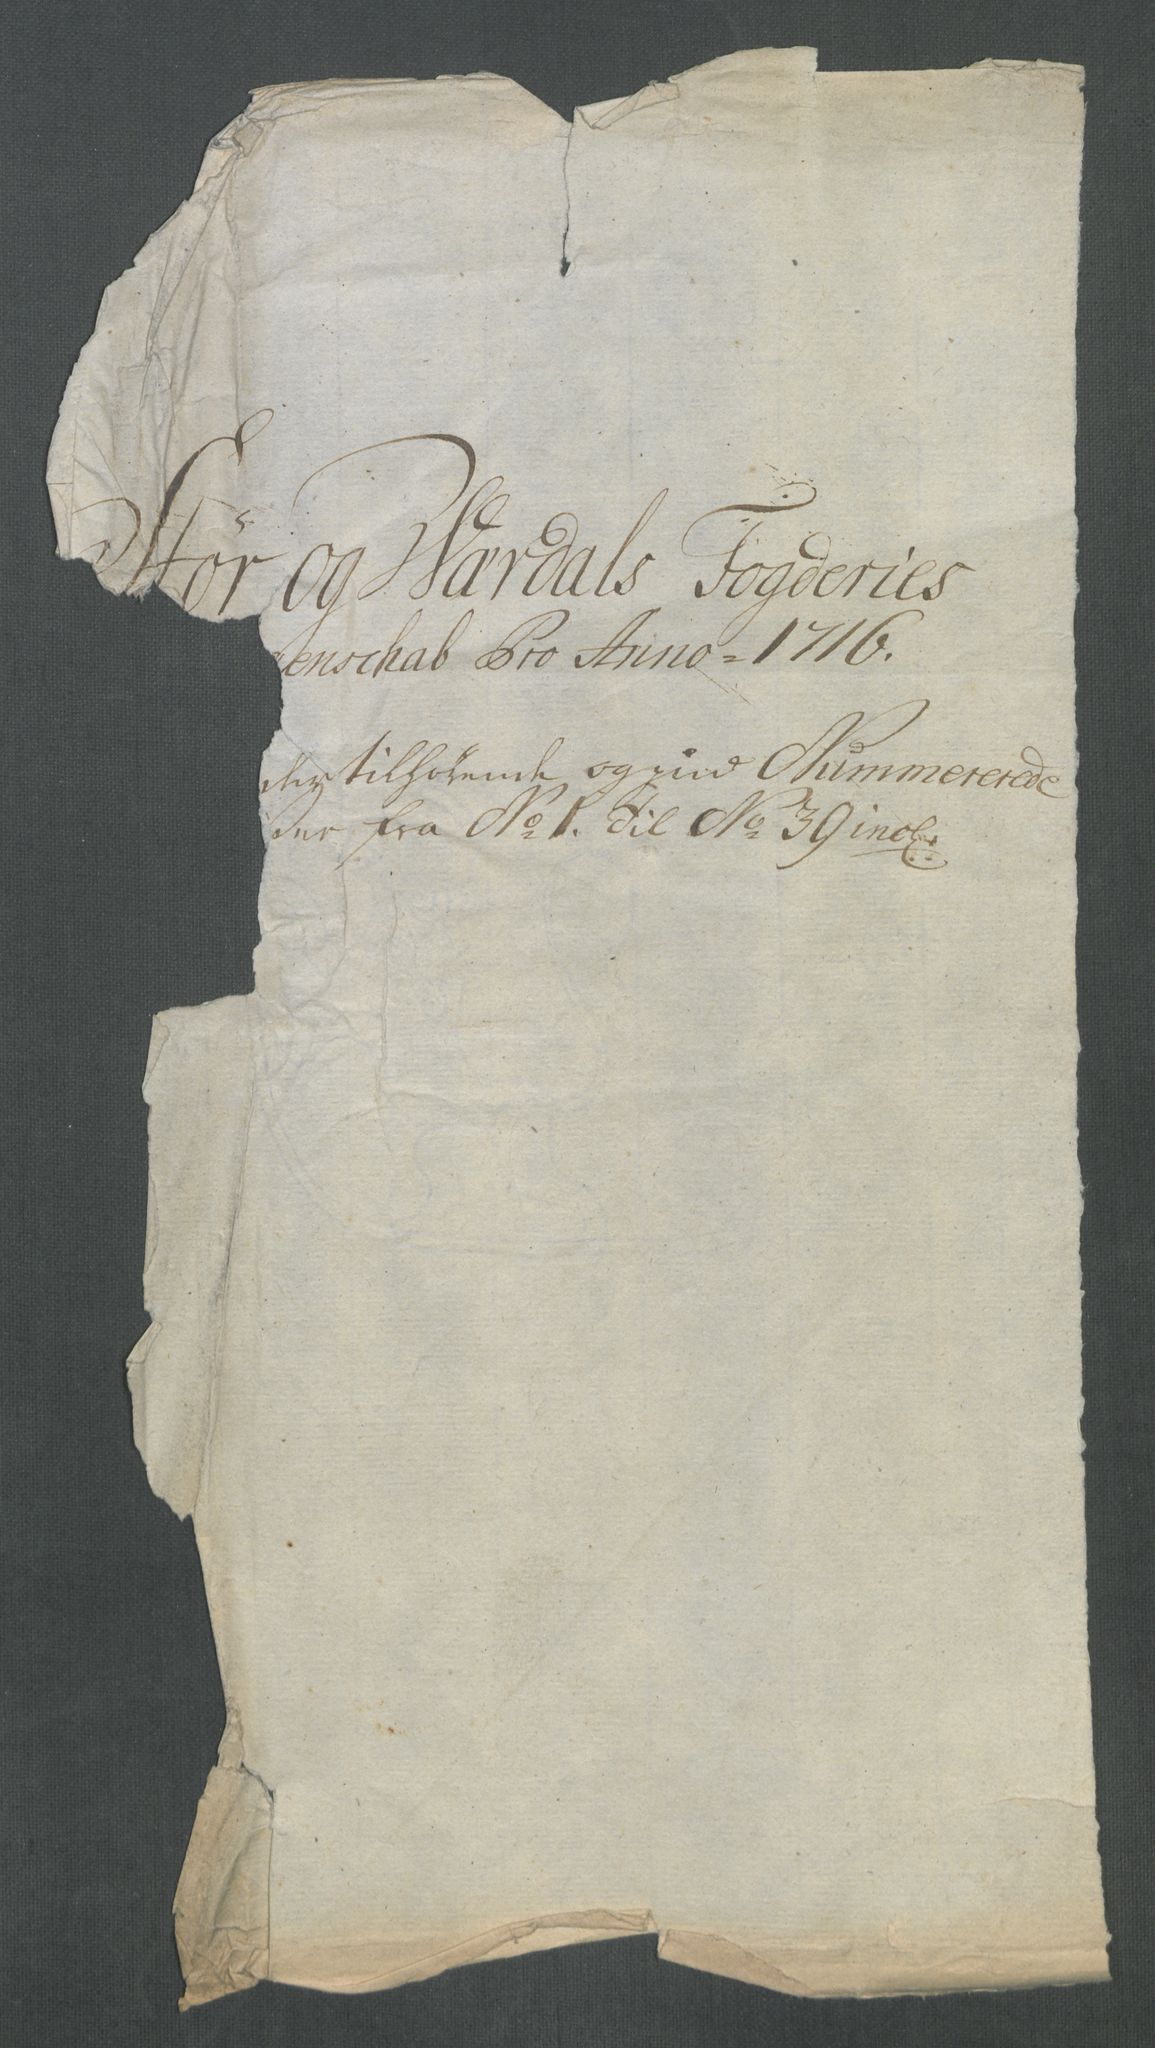 Stør og Wærdals Fogderies
genschab Pro Anno = 1716.
der tilhørende Nummererede
fra No 1. til No 39 incl: